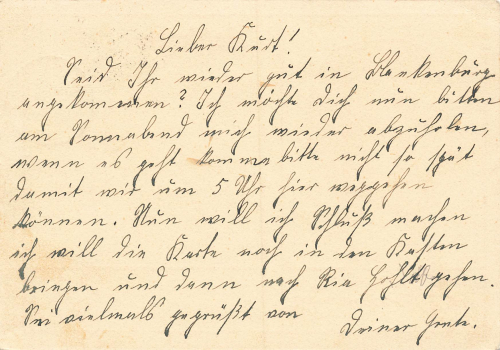 Lieber Kurt!
Seid Ihr wieder gut in Blankenburg
angekommen? Ich möchte Dich nun bitten
am Sonnabend mich wieder abzuholen,
wenn es geht komme bitte nicht so spät
damit wir um 5 Uhr hier weggehen
können. Nun will ich Schluß machen
ich will die Karte noch in den Kasten
bringen und dann nach Ria gehen.
Sei vielmals gegrüßt von
Deiner